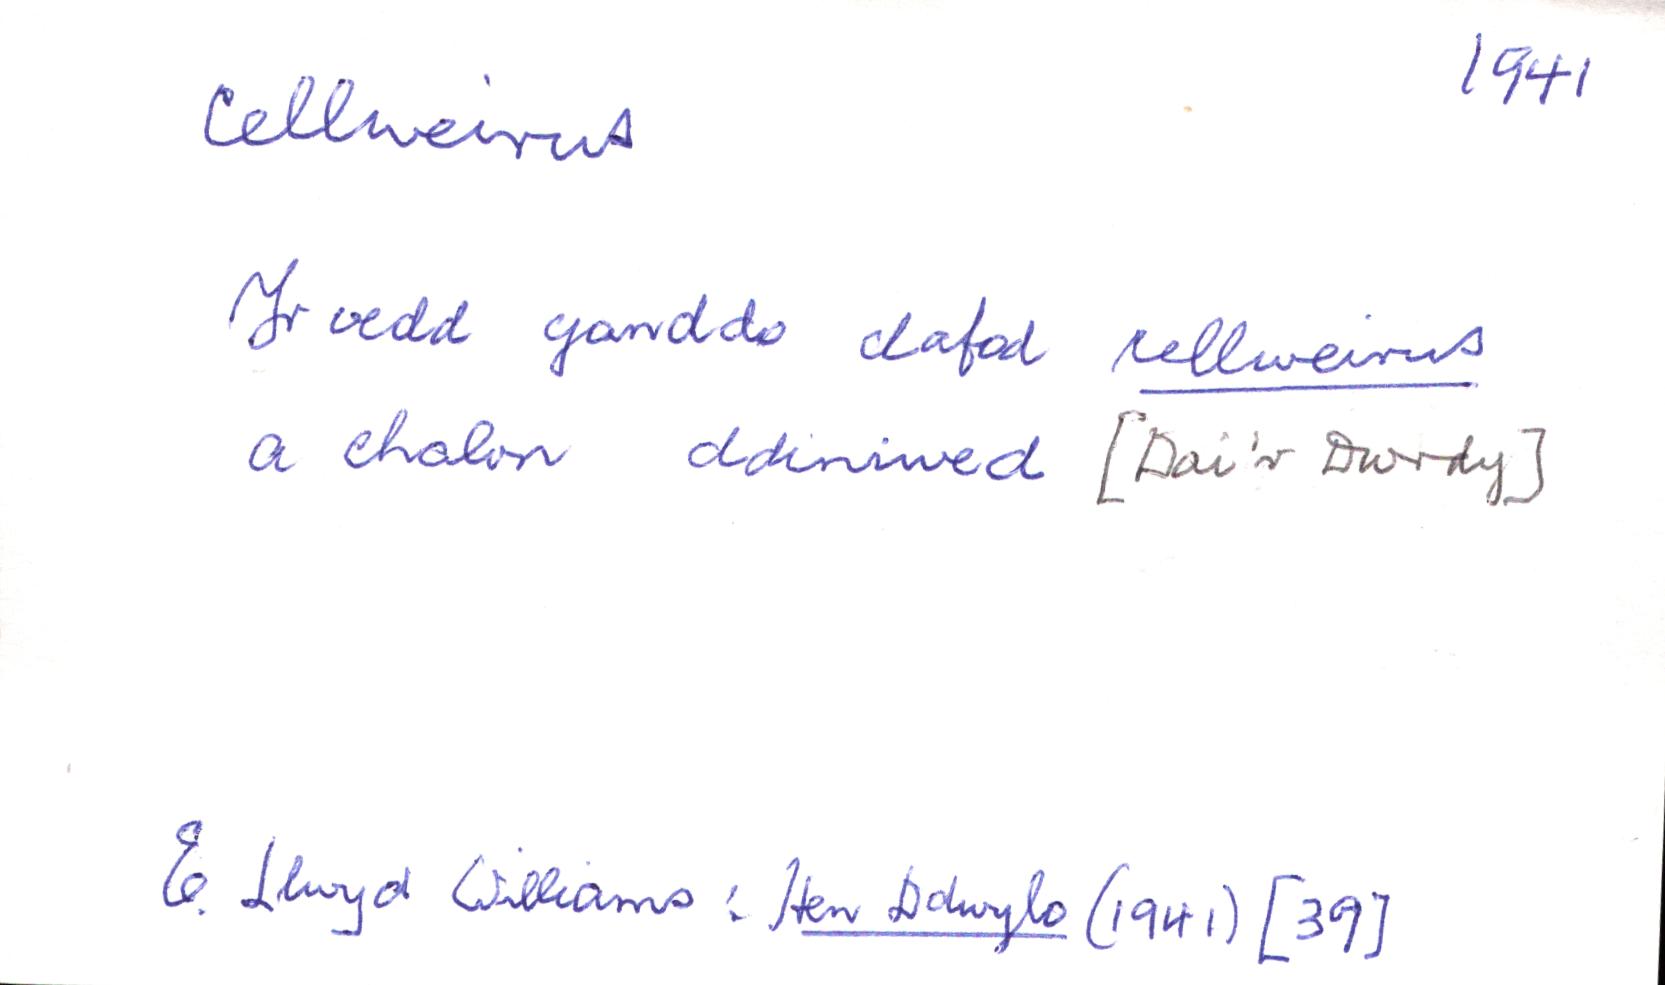 1941
Cellweirus
Yr oedd ganddo dafod cellweirus
a chalon ddiniwed [Dai'r Dwrdy]
E. Llwyd Williams : Hen Ddwylo (1941) [39]